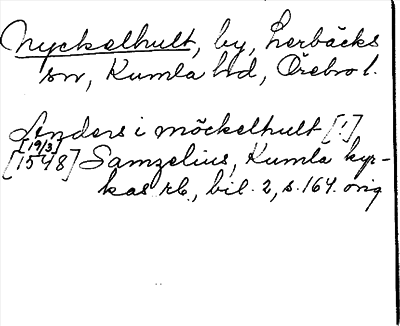 Nyckelhult, by, Lerbäcks
sn, Kumla hd, Örebro l.
Anders i möckelhult [!]
[19/3]
[1548] Samzelius, Kumla kyr-
kas rb., bil. 2, s. 164. orig